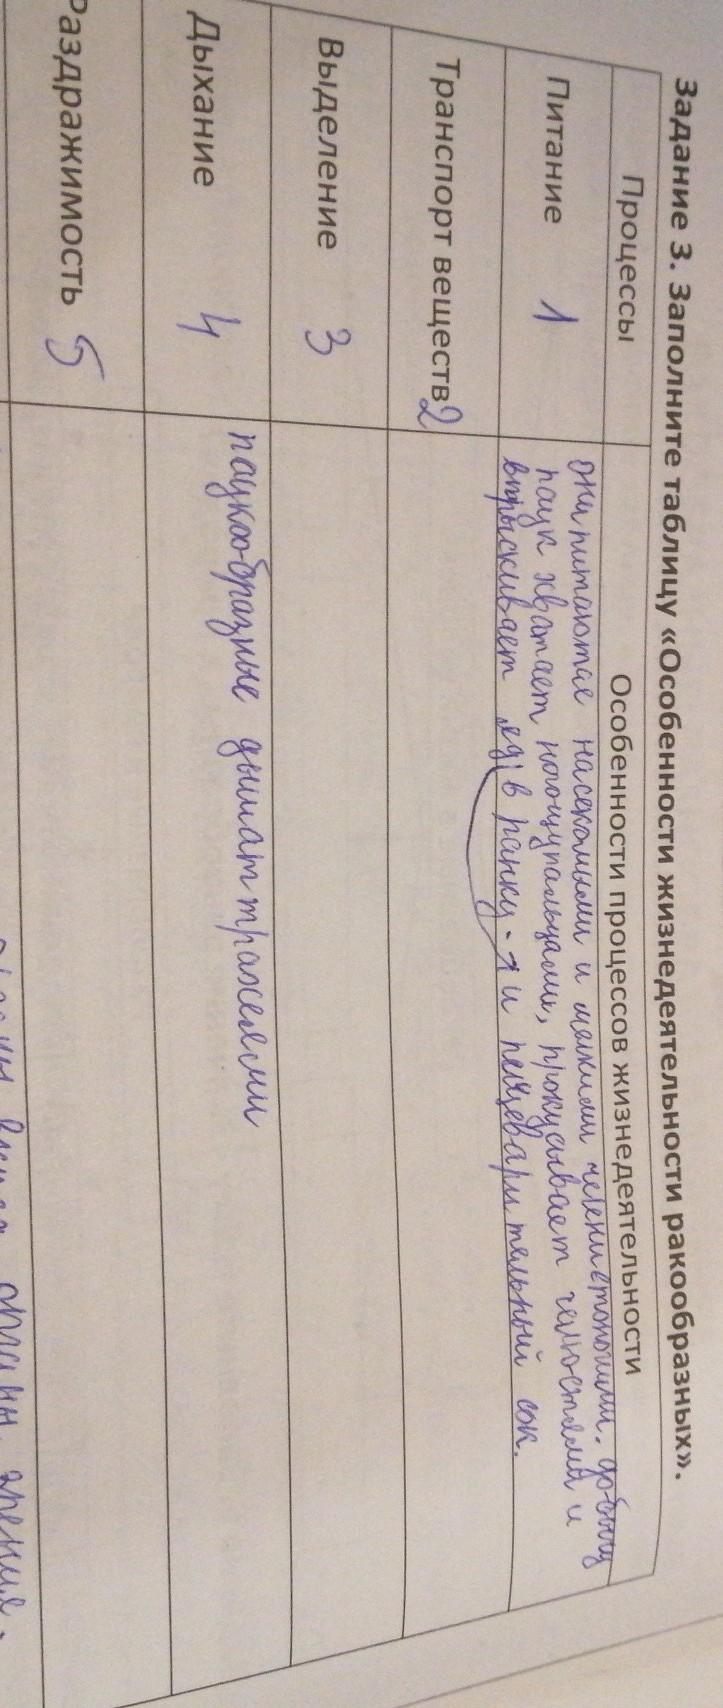 Задание 3. Заполните таблицу «Особенности жизнедеятельности ракообразных».
Процессы
Особенности процессов жизнедеятельности
Питание 1
они питаются насекомыми и мелкими членистоногими. добычу
паук хватает ногощупальцами, прокусывает челюстями и
впрыскивает яд в ранку. я и пищеварительный сок.
Транспорт веществ 2
Выделение 3
Дыхание 4
паукообразные дышат трахеями
Раздражимость 5
органы зрения.